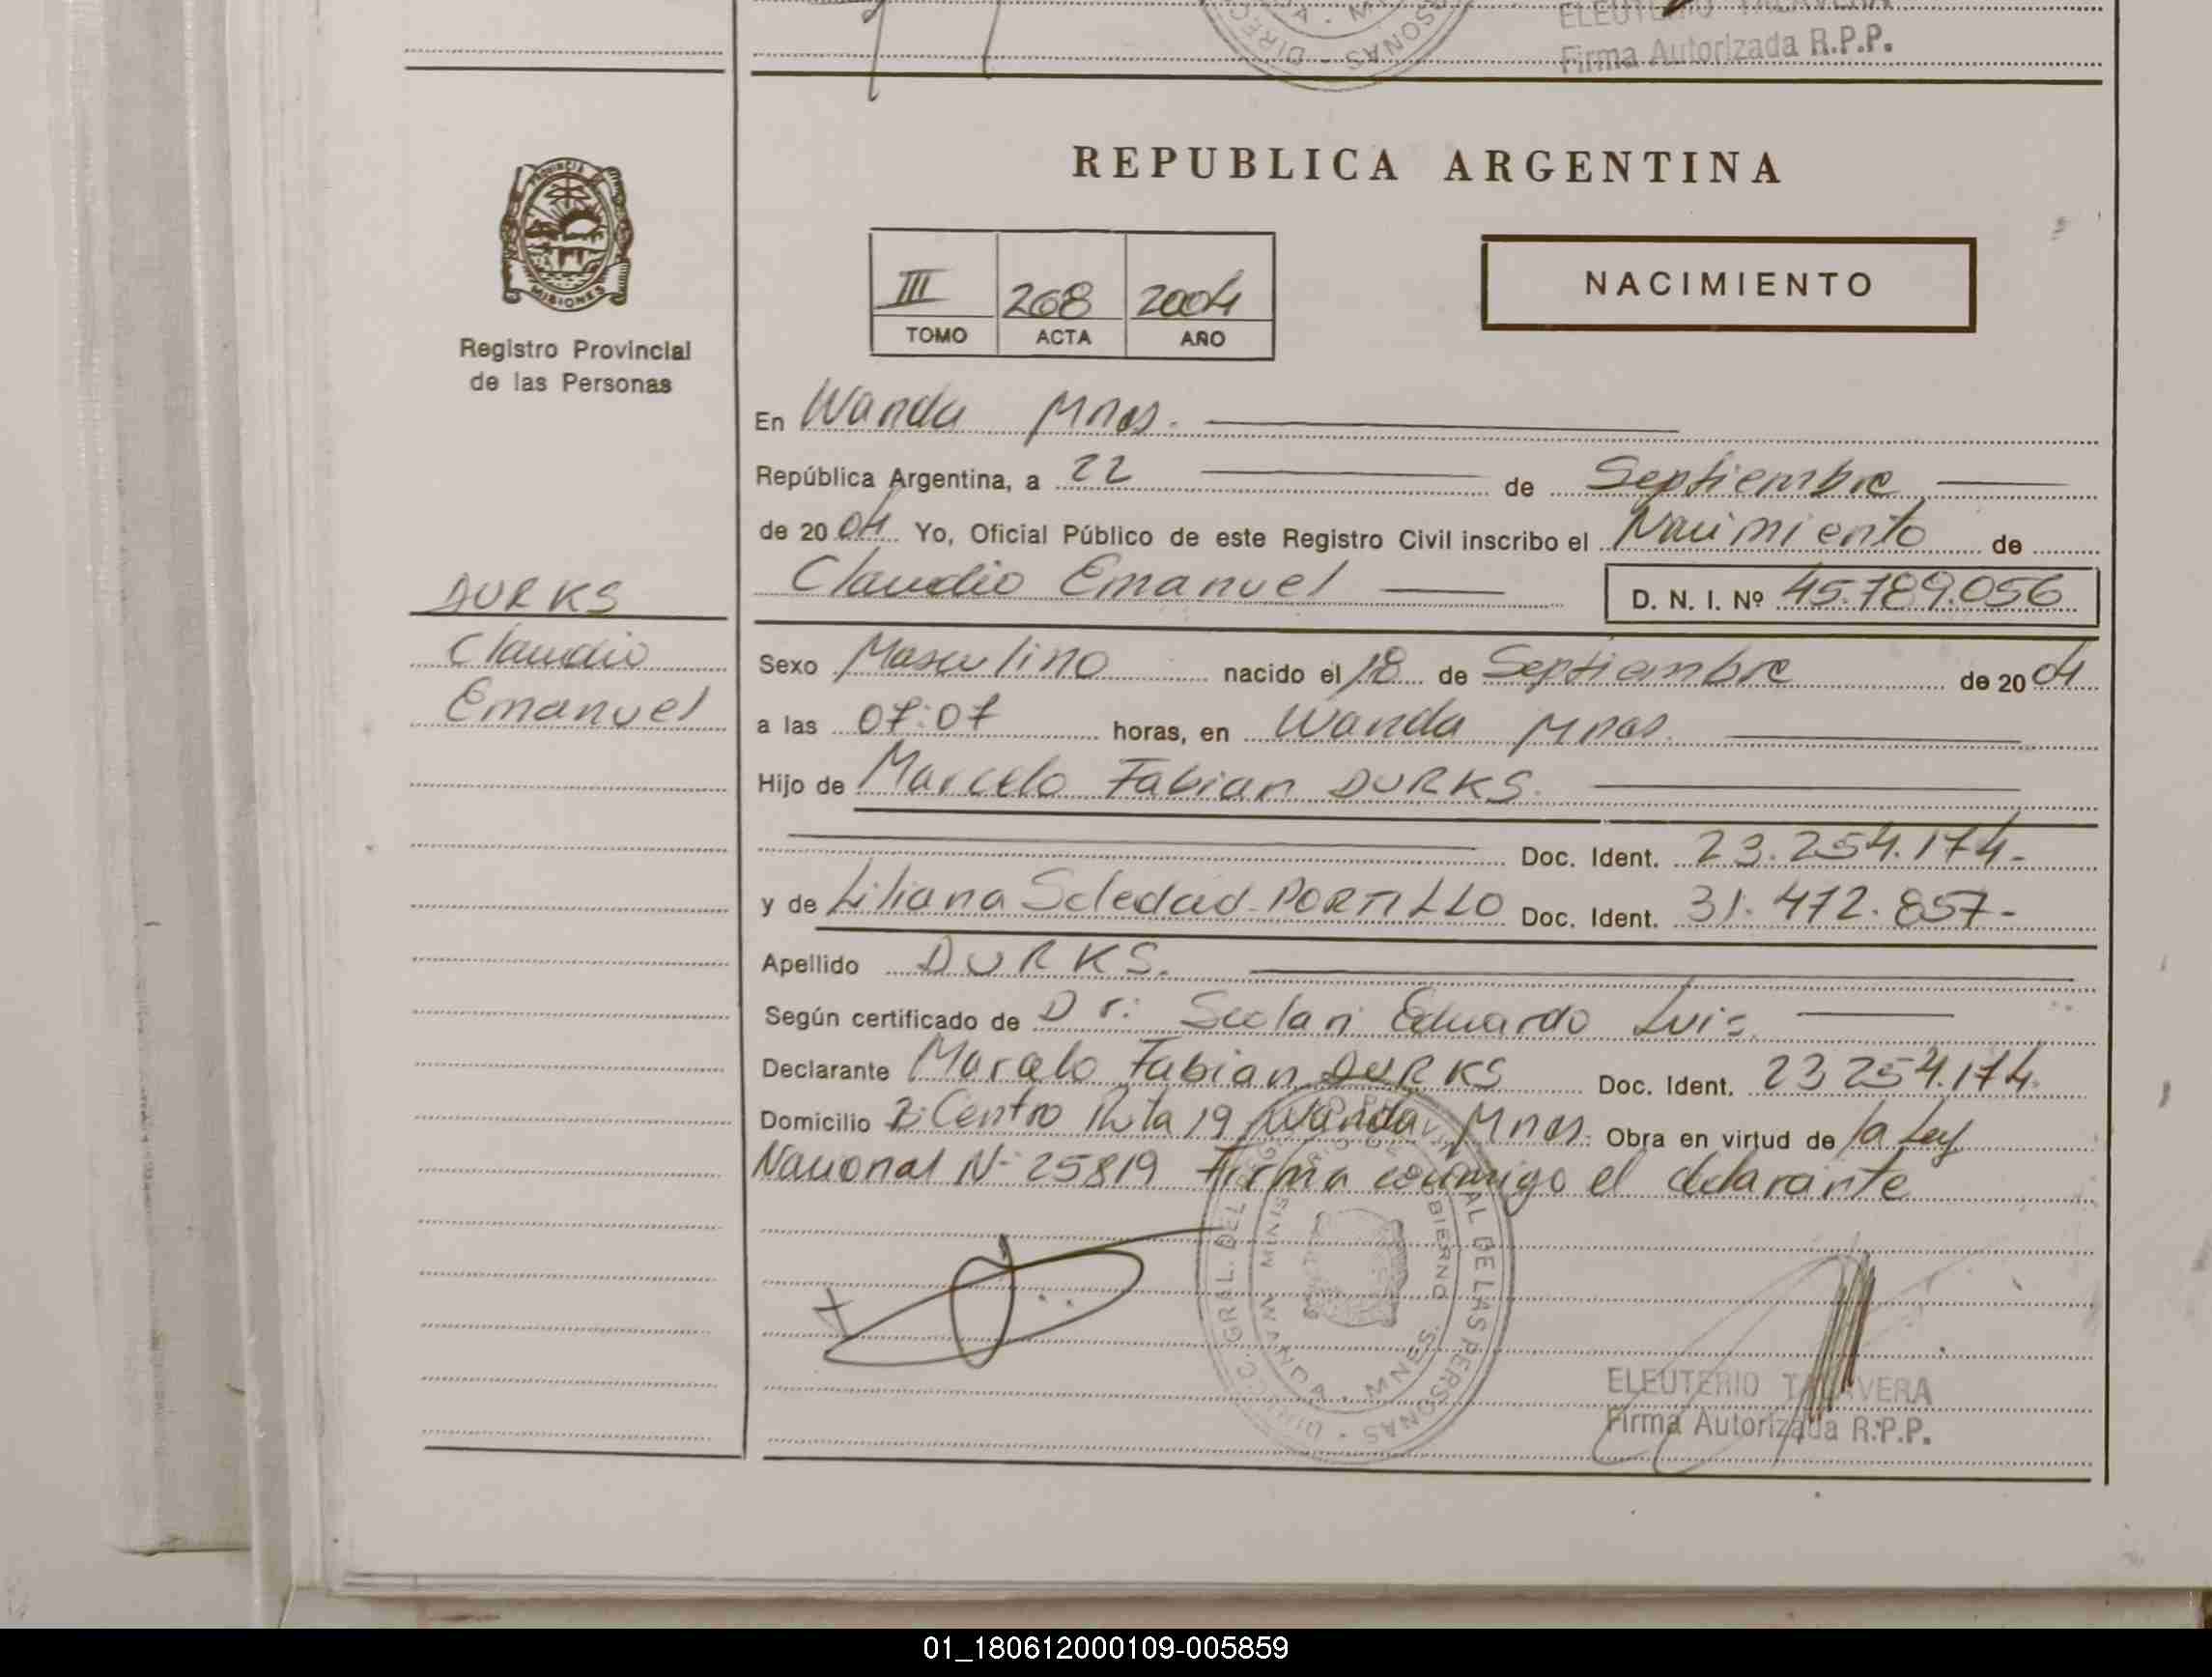 ELEUTERIO TALAVERA
Firma Autorizada R.P.P.
PROVINCIA
MISIONES
Registro Provincial
de las Personas
REPUBLICA ARGENTINA
III 268 2004
TOMO ACTA AÑO
NACIMIENTO
En Wanda Mnes.
República Argentina, a 22 de Septiembre
de 20 04 Yo, Oficial Público de este Registro Civil inscribo el Nacimiento de
Claudio Emanuel D. N. I. Nº 45.789.056
DURKS
Claudio
Emanuel
Sexo Masculino nacido el 18 de Septiembre de 20 04
a las 07:07 horas, en Wanda Mnes.
Hijo de Marcelo Fabian DURKS.
Doc. Ident. 23.254.174.-
y de Liliana Soledad PORTILLO Doc. Ident. 31.472.857-
Apellido DURKS.
Según certificado de Dr: Scolari Eduardo Luis.
Declarante Marcelo Fabian DURKS Doc. Ident. 23 254.174.
Domicilio B: Centro Ruta 19 Wanda Mnes. Obra en virtud de la Ley
Nacional Nº 25819 Firma conmigo el declarante
ELEUTERIO TALAVERA
Firma Autorizada R.P.P.
01_180612000109-005859